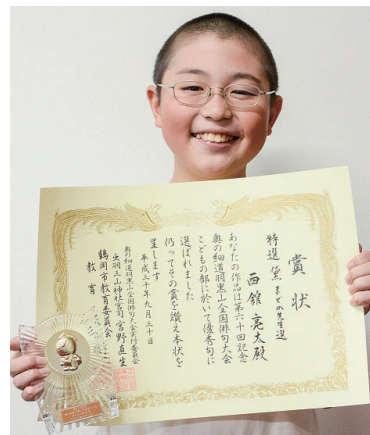 賞状
特選 黛まどか先生選
西舘亮太殿
あなたの作品は第六十回記念
奥の細道羽黒山全国俳句大会
こどもの部に於いて優秀句に
選ばれました
仍ってその賞を讃え本状を
呈します
平成三十年九月三十日
奥の細道羽黒山全国俳句大会実行委員会
出羽三山神社宮司 宮野直生
鶴岡市教育委員会
教育